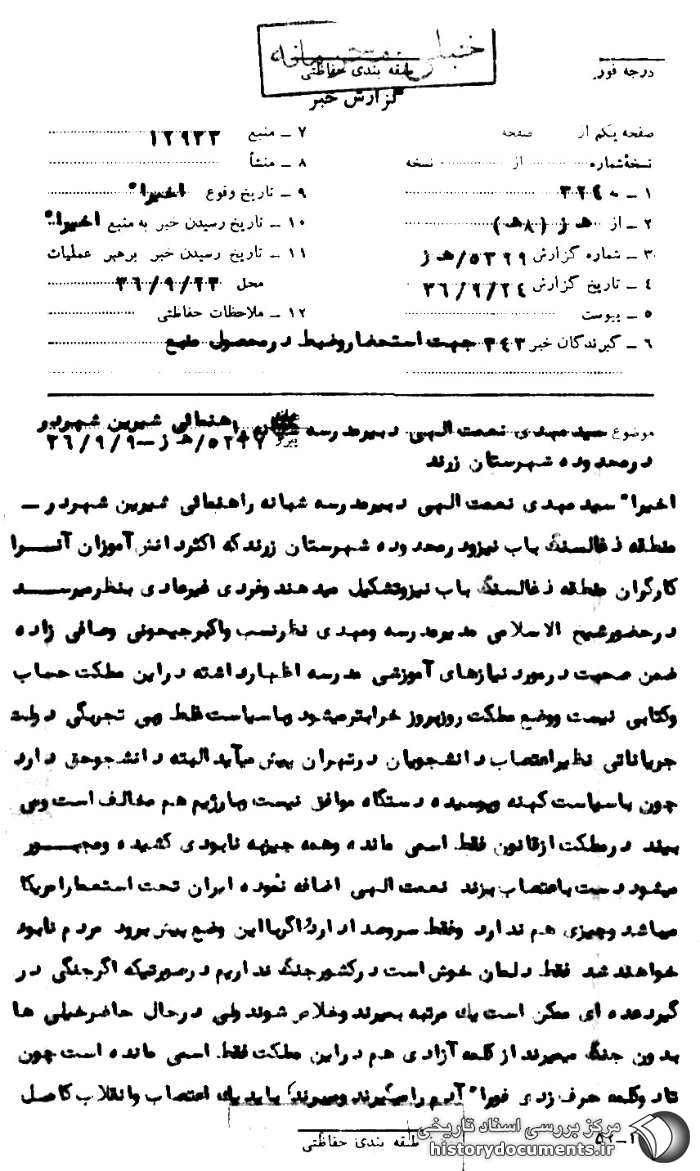 خیلی محرمانه
درجه فوری
طبقه بندی حفاظتی
گزارش خبر
صفحه یکم از صفحه
نسخهٔ شماره از نسخه
۱ ـ ۳۲۴۰
۲ ـ از ه‍ ز (۸ه‍)
۳ ـ شماره گزارش ۵۳۶۹/ه‍ ز
۴ ـ تاریخ گزارش ۳۶/۹/۲۴
۵ ـ پیوست
۶ ـ گیرندگان خبر ۳۴۳ جهت استحضار وضبط در محصول منبع
۷ ـ منبع ۱۲۹۳۳
۸ ـ منشأ
۹ ـ تاریخ وقوع اخیرا"
۱۰ ـ تاریخ رسیدن خبر به منبع اخیرا"
۱۱ ـ تاریخ رسیدن خبر برهبر عملیات
محل ۳۶/۹/۲۳
۱۲ ـ ملاحظات حفاظتی
موضوع سید مهدی نعمت الهی دبیر مدرسه شبانه راهنمائی شیرین شهر در
در محدوده شهرستان زرند
پیرو ۵۲۴۷/ه‍ ز ـ ۳۶/۹/۹
اخیرا" سید مهدی نعمت الهی دبیر مدرسه شبانه راهنمائی شیرین شهر در ـ
منطقه ذغالسنگ باب نیزو در محدوده شهرستان زرند که اکثر دانش آموزان آنرا
کارگران منطقه ذغالسنگ باب نیزو تشکیل میدهند وفردی غیرعادی بنظر میرسد
در حضور شیخ الاسلامی مدیر مدرسه ومهدی نظر نسب واکبر جیحونی وصافی زاده
ضمن صحبت در مورد نیازهای آموزشی مدرسه اظهار داشته در این مملکت حساب
وکتابی نیست ووضع مملکت روزبروز خرابتر میشود وبا سیاست غلط وبی تحرکی دولت
جریاناتی نظیر اعتصاب دانشجویان در تهران پیش میآید البته دانشجو حق دارد
چون با سیاست کهنه وپوسیده دستگاه موافق نیست وبا رژیم هم مخالف است ومی
بیند در مملکت از قانون فقط اسمی مانده وهمه چیز به نابودی کشیده ومجبور
میشود دست باعتصاب بزند نعمت الهی اضافه نموده ایران تحت استعمار امریکا
میباشد وچیزی هم ندارد وفقط سروصدا دارد اگر با این وضع پیش برود مردم نابود
خواهند شد فقط دلمان خوش است در کشور جنگ نداریم در صورتیکه اگر جنگی در
گیرد عده ای ممکن است یك مرتبه بمیرند وخلاص شوند ولی در حال حاضر خیلی ها
بدون جنگ میمیرند از کلمه آزادی هم در این مملکت فقط اسمی مانده است چون
تا دو کلمه حرف زدی فورا" آدم را میگیرند ومیبرند باید یك اعتصاب وانقلاب کامل
طبقه بندی حفاظتی
مرکز بررسی اسناد تاریخی
historydocuments.ir